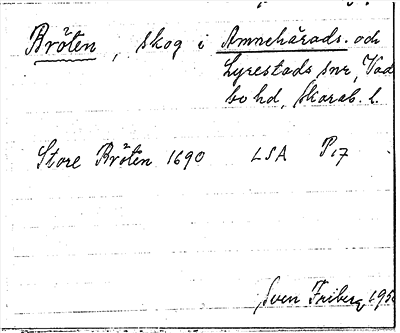 Bröten, skog i Amnehärads. och
Lyrestads snr, Vad
bo hd, Skarab. l.
Store Bröten 1690 LSA P17
Sven Friberg 195